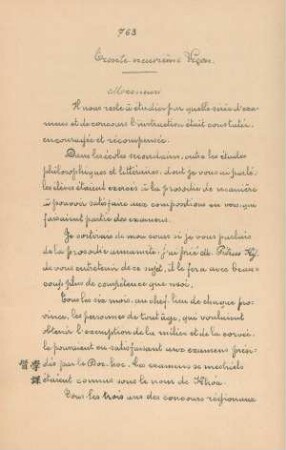 763
Trente neuvième Leçon.
Messieurs
Il nous reste à étudier par quelle série d'exa-
mens et de concours l'instruction était constatée,
encouragée et récompensée.
Dans les écoles secondaires, outre les études
philosophiques et littéraires, dont je vous ai parlé,
les élèves étaient exercés à la prosodie de manière
à pouvoir satisfaire aux compositions en vers, qui
faisaient partie des examens.
Je sortirais de mon cours si je vous parlais
de la prosodie annamite; j'ai prié M.
de vous entretenir de ce sujet, il le fera avec beau-
coup plus de compétence que moi.
Tous les six mois, au chef-lieu de chaque pro-
vince, les personnes de tout âge, qui voulaient
obtenir l'exemption de la milice et de la corvée,
le pouvaient en satisfaisant aux examens prési-
dés par le Doc-hoc. Ces examens semestriels
étaient connus sous le nom de Khoa
習 學 課
Tous les trois ans des concours régionaux